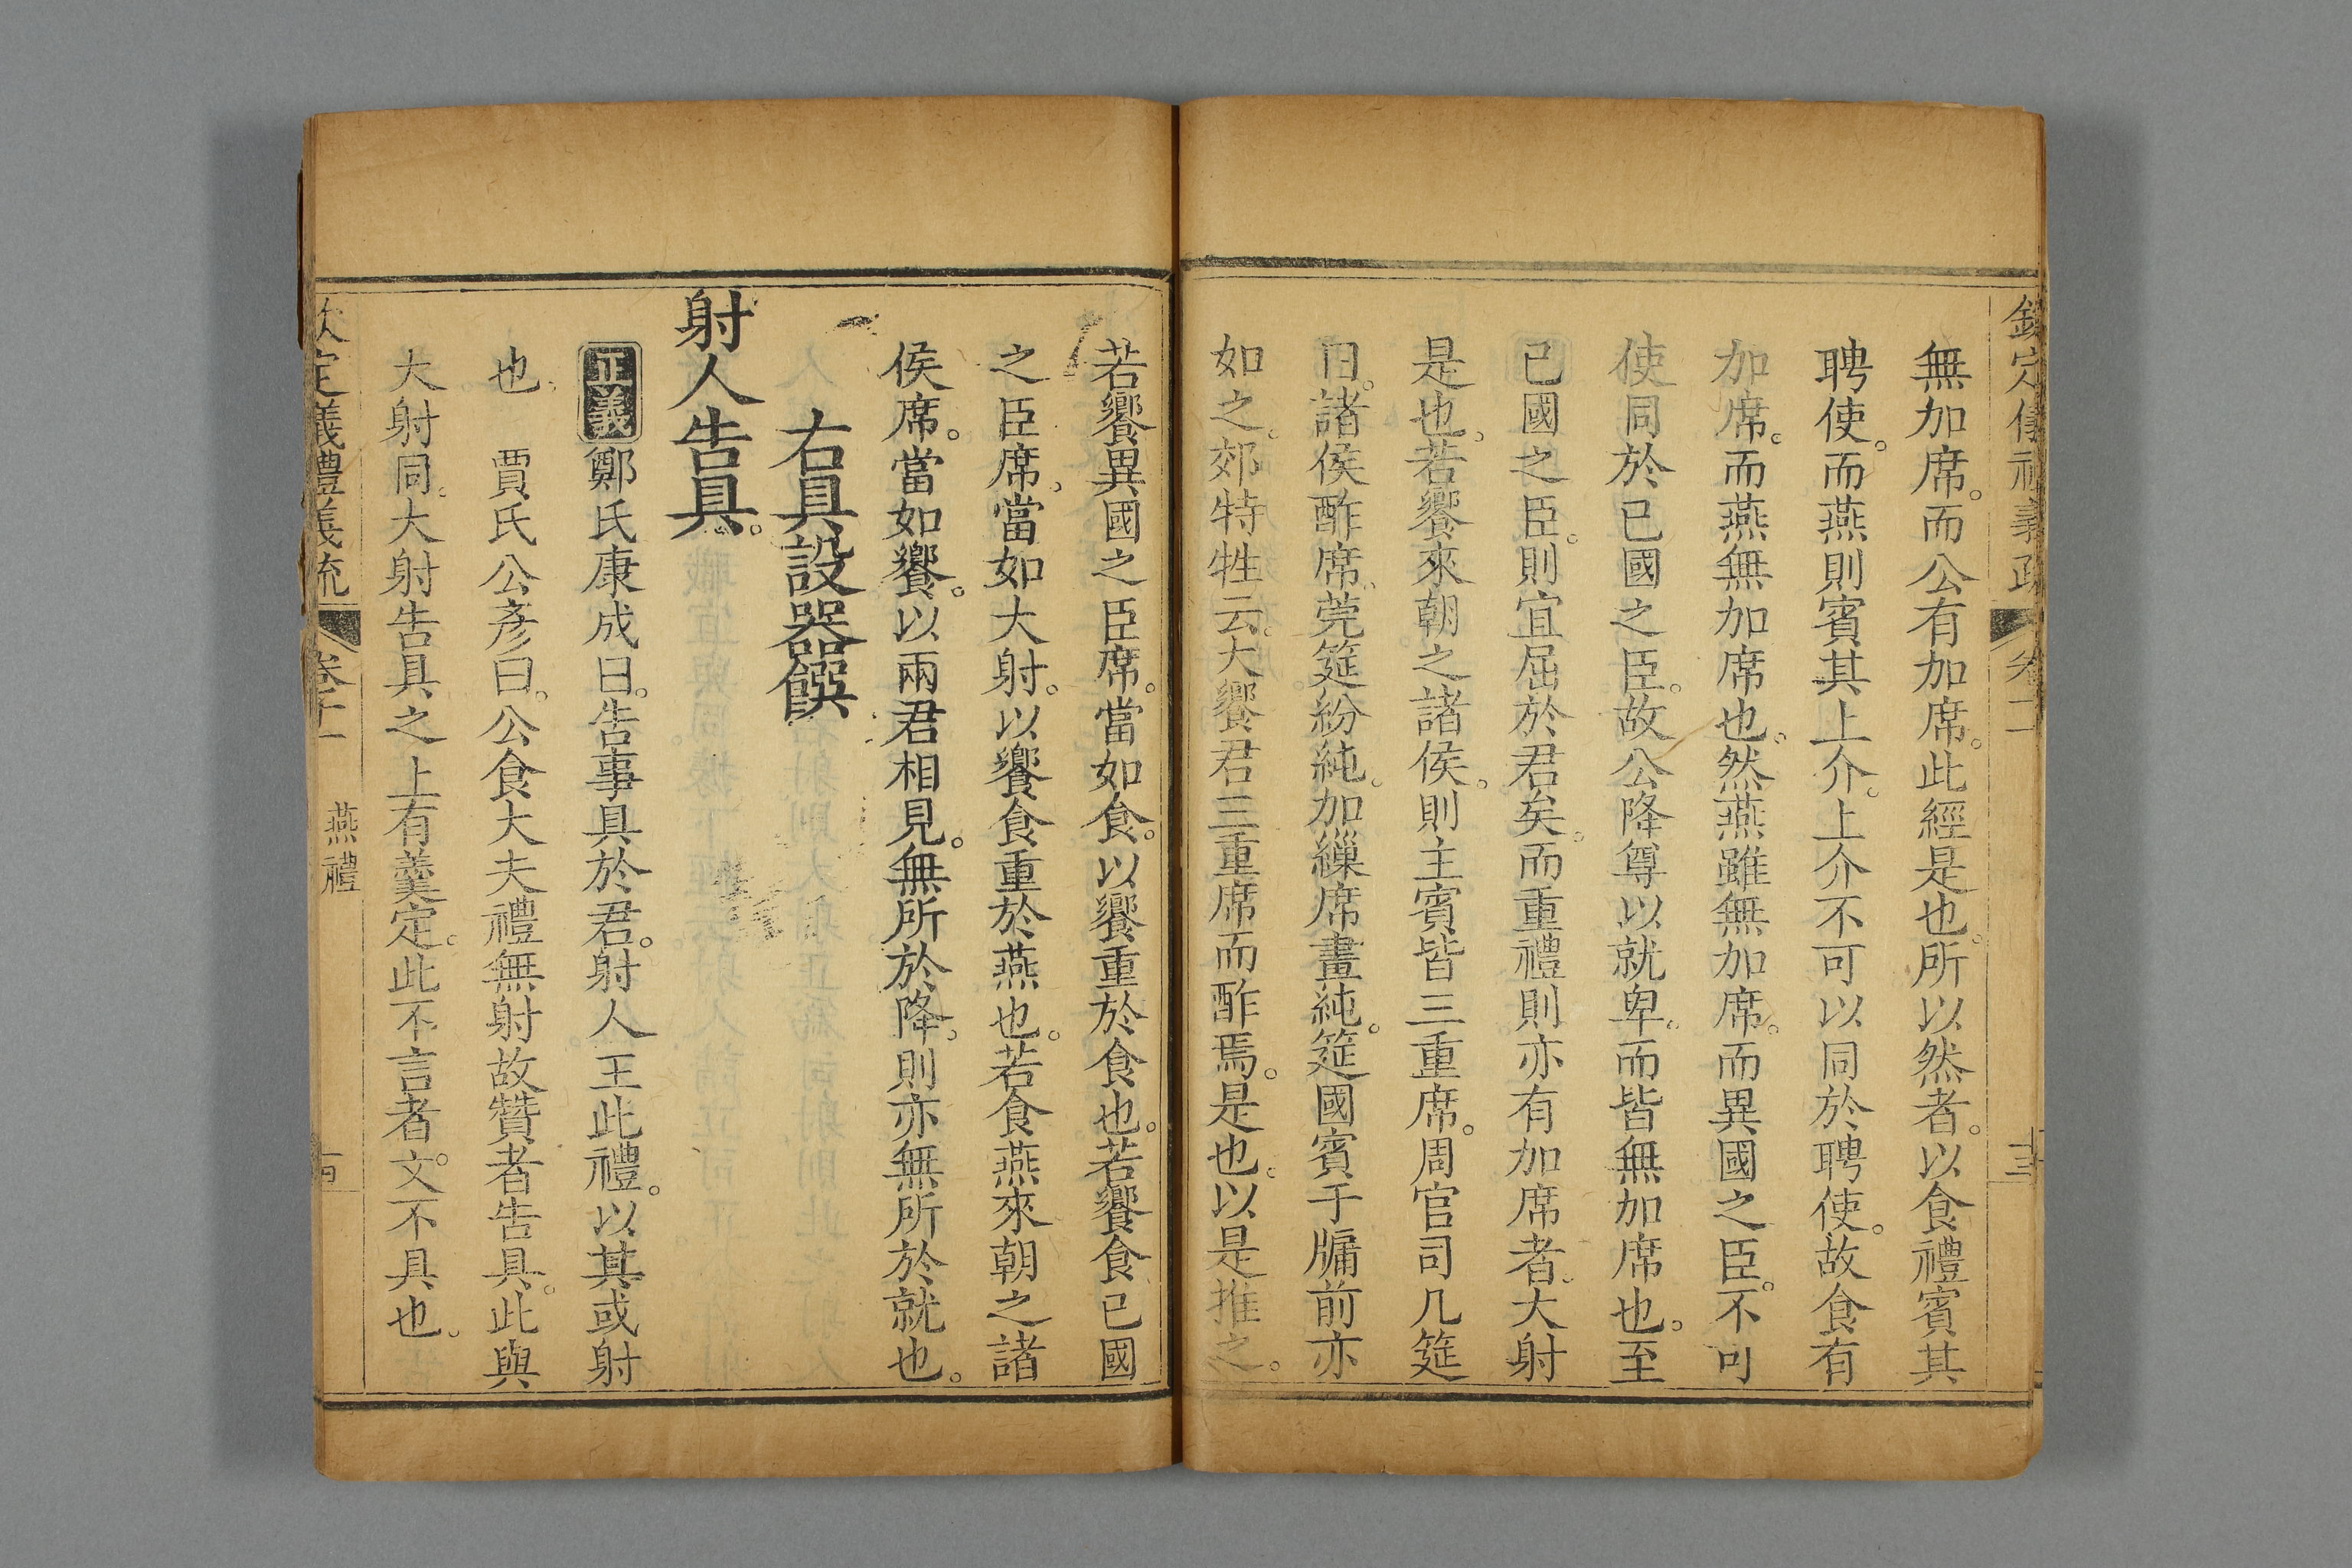 無加席。而公有加席。此經是也。所以然者。以食禮賓其
聘使。而燕則賓其上介。上介不可以同於聘使。故食有
加席。而燕無加席也。然燕雖無加席。而異國之臣。不可
使同於已國之臣。故公降尊以就卑。而皆無加席也。至
已國之臣。則宜屈於君矣。而重禮則亦有加席者。大射
是也。若饗來朝之諸侯。則主賓皆三重席。周官司几筵
曰。諸侯酢席。莞筵紛純。加繅席畫純。筵國賓于牖前亦
如之。郊特牲云。大饗君三重席而酢焉。是也。以是推之。
若饗異國之臣席。當如食。以饗重於食也。若饗食已國
之臣席。當如大射。以饗食重於燕也。若食燕來朝之諸
侯席。當如饗。以兩君相見。無所於降。則亦無所於就也。
右具設器饌
射人告具。
正義 鄭氏康成曰。告事具於君。射人王此禮。以其或射
也 賈氏公彥曰。公食大夫禮無射故贊者告具。此與
大射同。大射告具之上有羹定。此不言者。文不具也。
欽定儀禮義疏 卷十一 燕禮